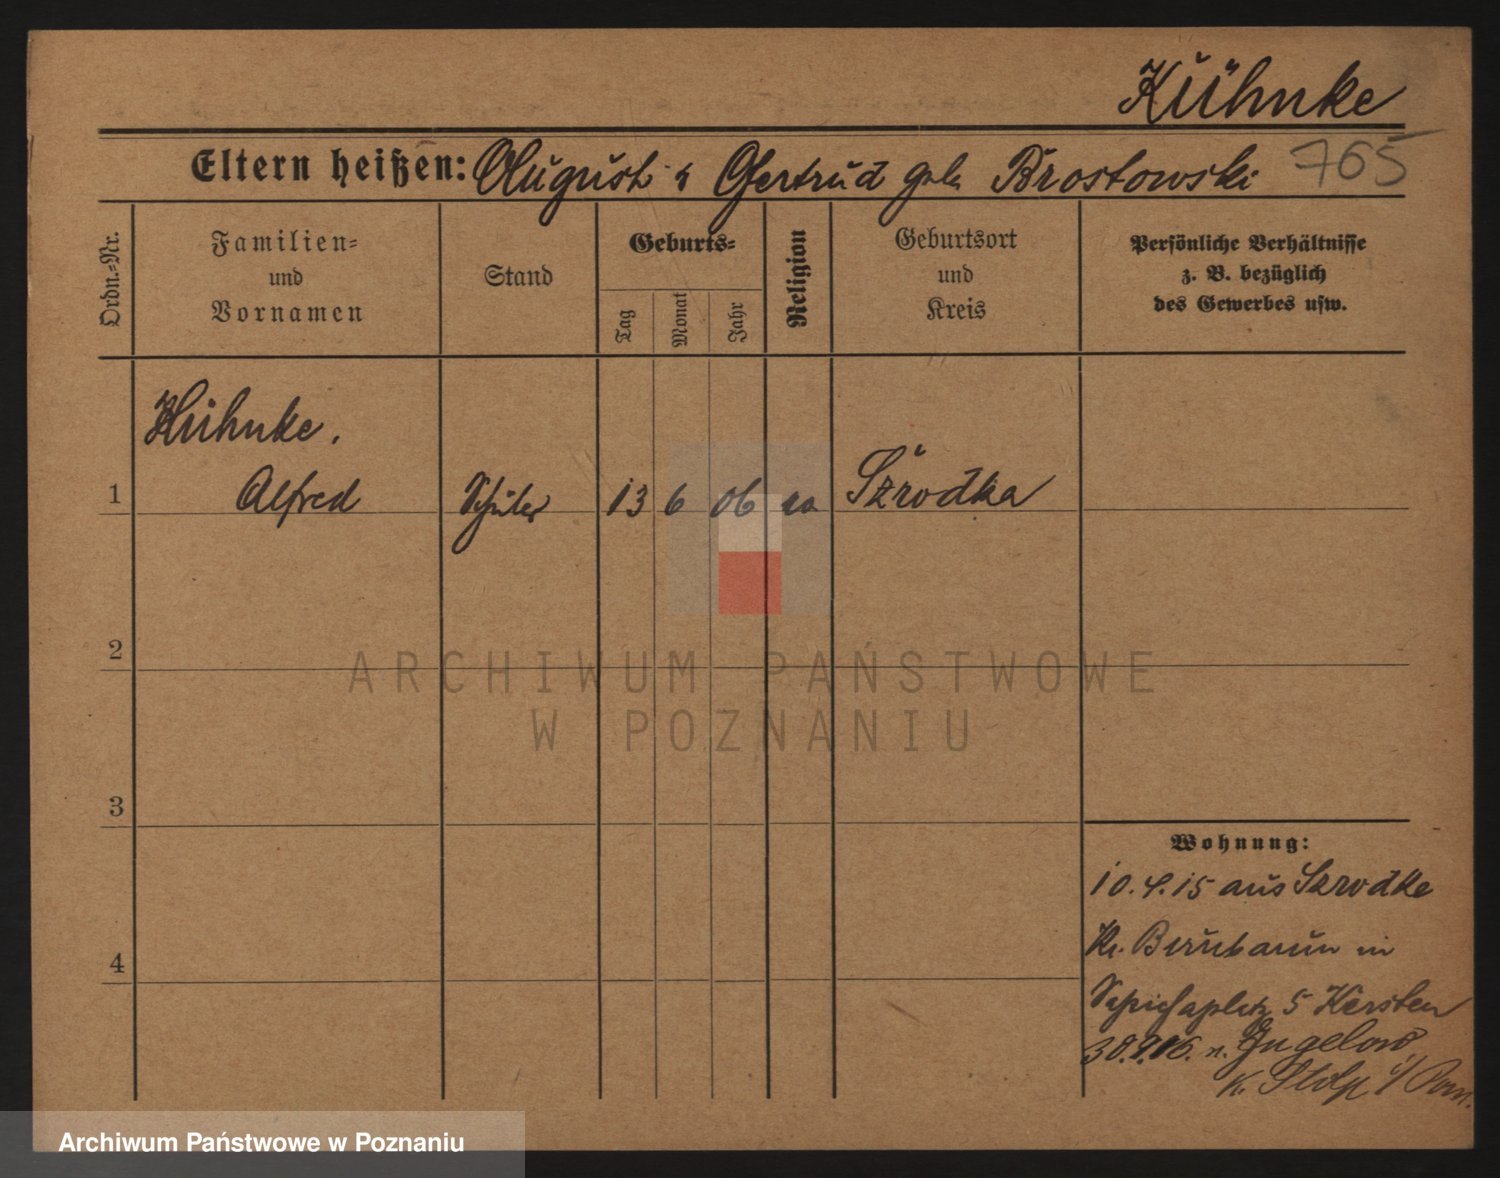 Kühnke
Eltern heißen: August u Gertrud geb. Brostowski 765
Ordn.=Nr.
Familien=
und
Vornamen
Stand
Geburts=
Tag
Monat
Jahr
Religion
Geburtsort
und
Kreis
Persönliche Verhältnisse
z. B. bezüglich
des Gewerbes usw.
Kühnke.
1 Alfred Schüler 13 6 06 Szrodka
2
3
4
Wohnung:
10.4.15 aus Szrodke
Kr. Birnbaum in
5 Kersten
30.9.16. n.
K. Stolp i/Pom.
ARCHIWUM PAŃSTWOWE
W POZNANIU
Archiwum Państwowe w Poznaniu